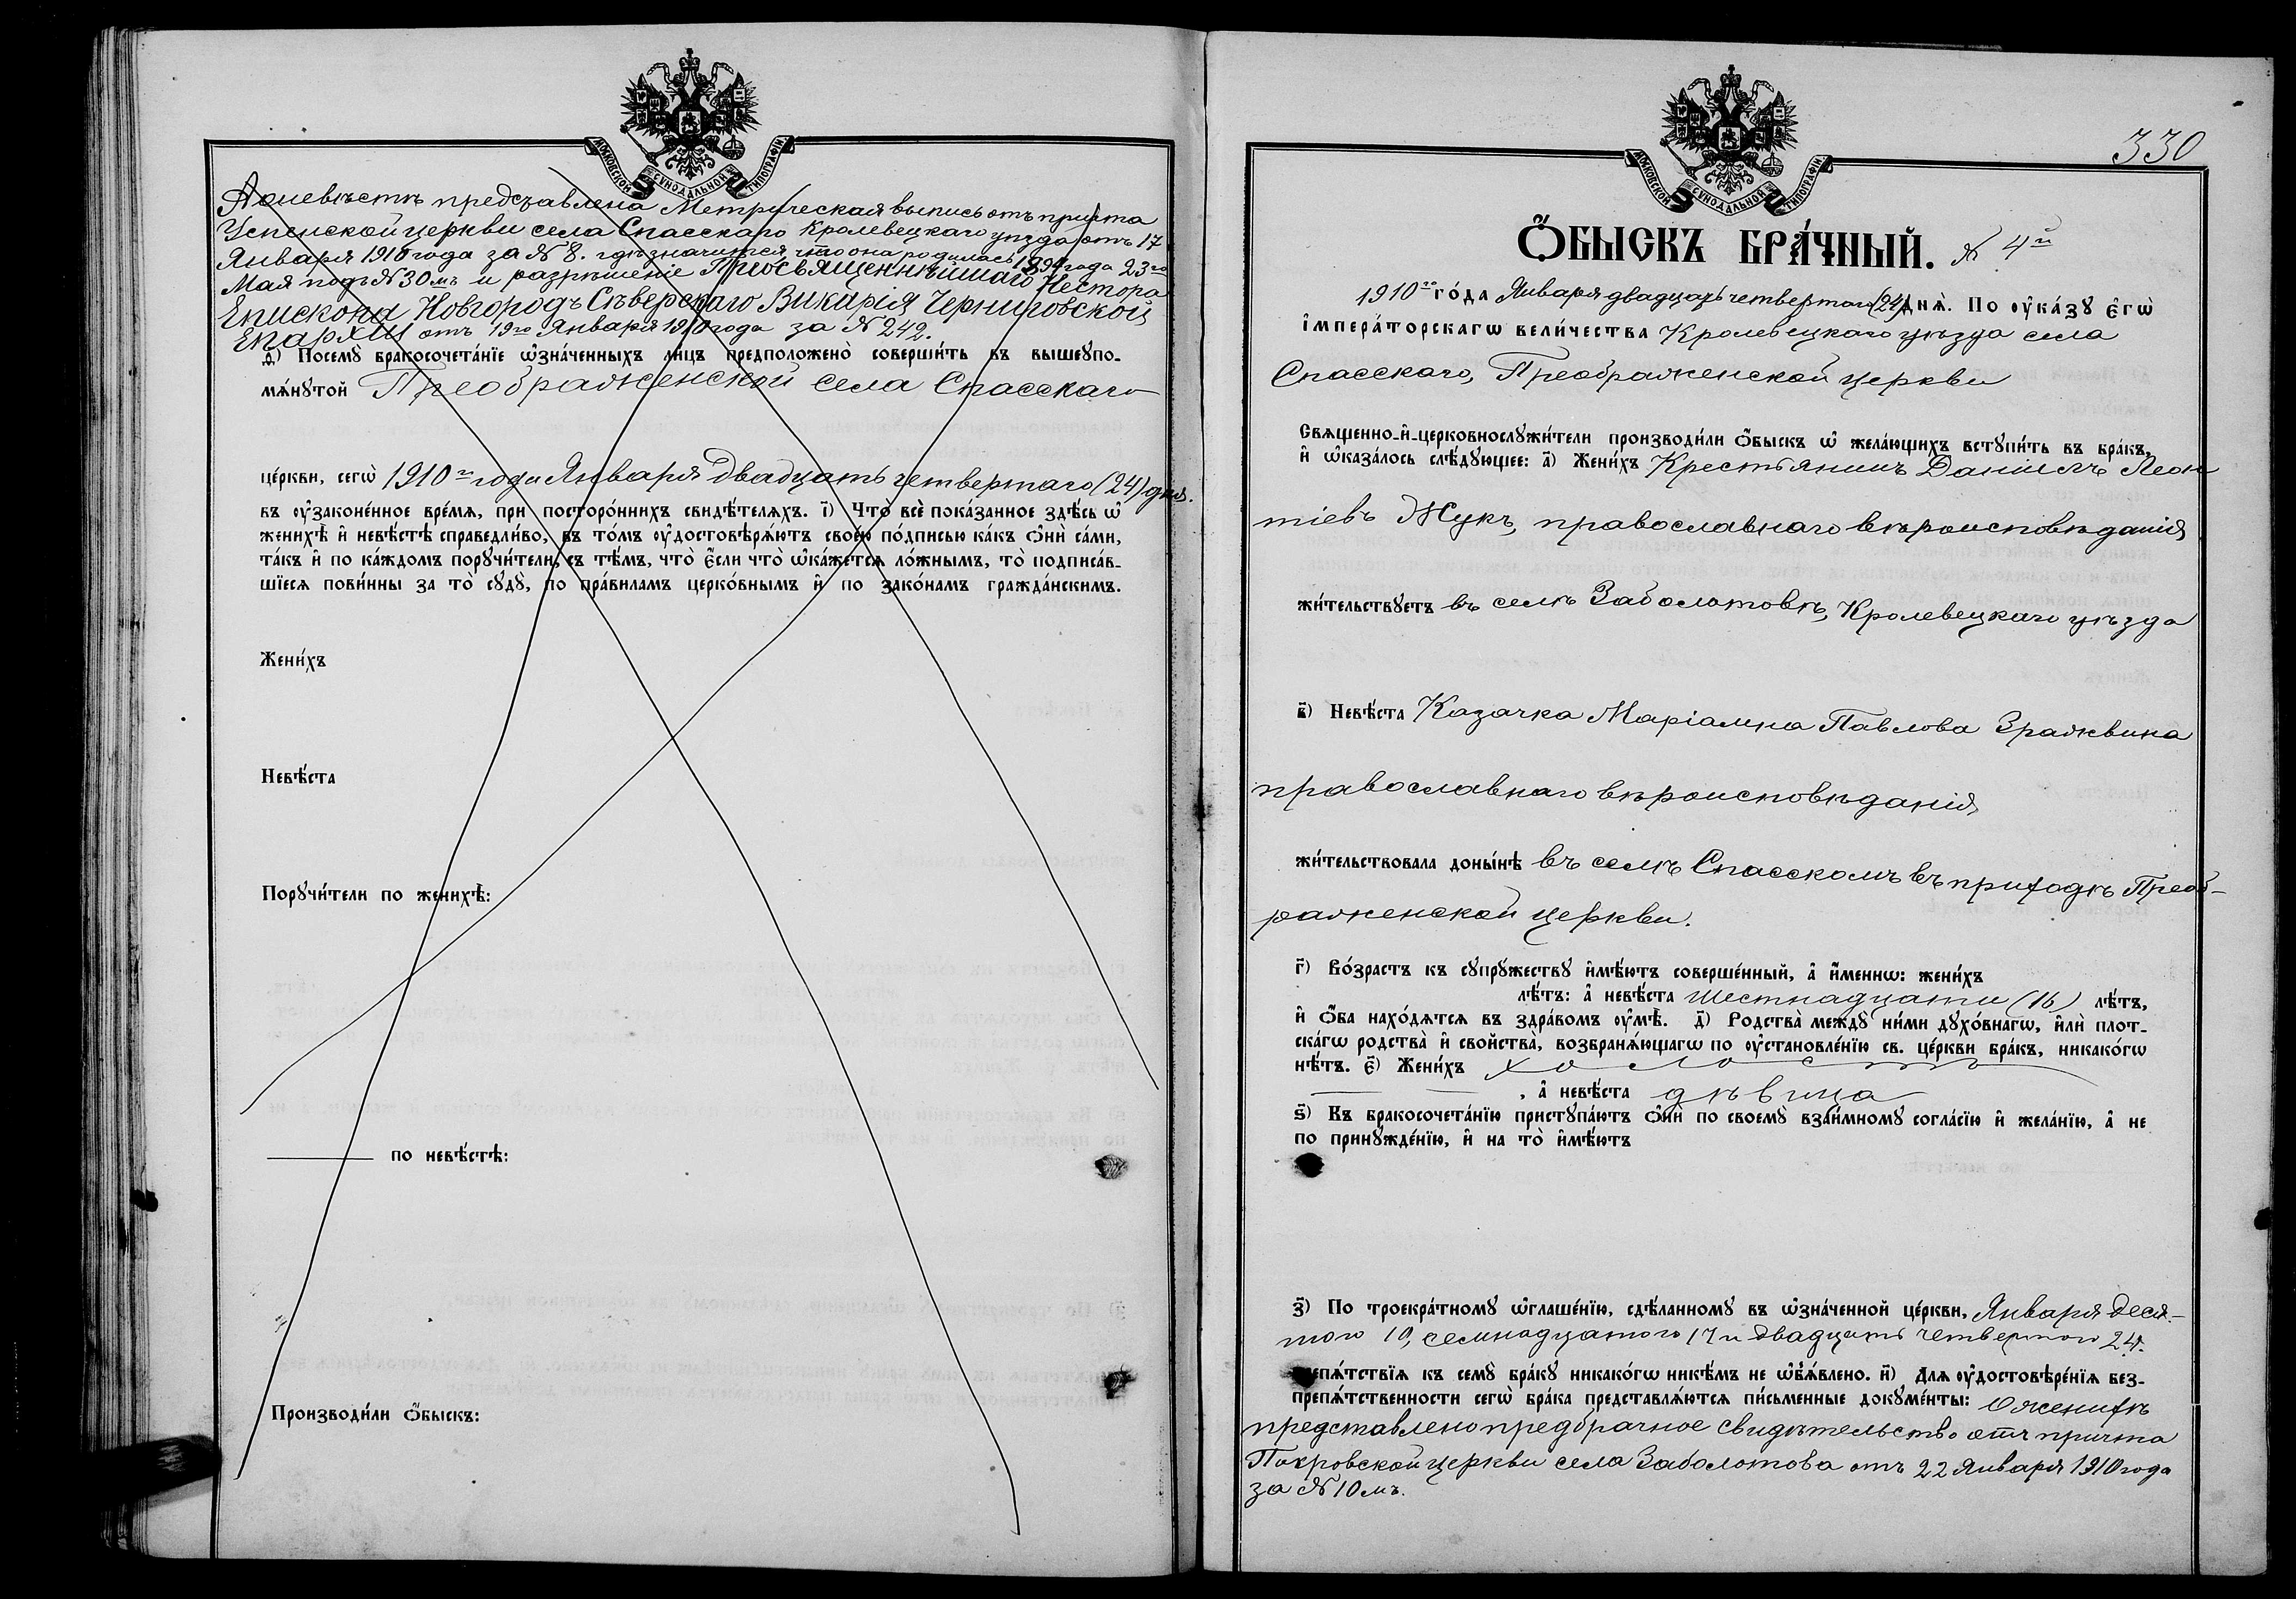 МОСКОВСКОЙ СѴНОДАЛЬНОЙ ТИПОГРАФІИ
А о невѣстѣ предъявлена Метрическая выпись отъ причта
Успенской церкви села Спасскаго Кролевецкаго уѣзда отъ 17
Января 1910 года за № 8. гдѣ значится, что она родилась 1894 года 23го
Мая подъ № 30мъ и разрѣшеніе Преосвященнѣйшаго Нестора
Епископа Новгородъ Сѣверскаго Викарія Черниговской
Епархіи отъ 19го Января 1910 года за № 242.
д҃) Посемꙋ̀ бракосочета́нїе ѡ҆зна́ченныхъ ли́цъ предположено̀ соверши́ть въ вышеꙋпо-
мѧ́нꙋтой Преображенской села Спасскаго
це́ркви, сегѡ̀ 1910го года Января двадцать четвертаго (24) дня.
въ ᲂу҆законе́нное вре́мѧ, при посторо́ннихъ свидѣ́телѧхъ. і҃) Что̀ всѐ пока́занное здѣ́сь ѡ҆
женихѣ̀ и҆ невѣ́стѣ справедли́во, въ то́мъ ᲂу҆достовѣрѧ́ютъ свое́ю по́дписью ка́къ ѻ҆нѝ са́ми,
та́къ и҆ по ка́ждомъ порꙋчи́тели, съ тѣ́мъ, что̀ є҆́сли что̀ ѡ҆ка́жетсѧ ло́жнымъ, то̀ подписа́в-
шїесѧ пови́нны за то̀ сꙋдꙋ̀, по пра́виламъ церко́внымъ и҆ по зако́намъ гражда́нскимъ.
Жени́хъ
Невѣ́ста
Порꙋчи́тели по женихѣ̀:
по невѣ́стѣ:
Производи́ли ѻ҆́быскъ:
330
МОСКОВСКОЙ СѴНОДАЛЬНОЙ ТИПОГРАФІИ
Ѻ҆́БЫСКЪ БРА́ЧНЫЙ. № 4й
1910го го́да Января двадцать четвертаго (24) днѧ̀. По ᲂу҆ка́зꙋ є҆гѡ̀
і҆мпера́торскагѡ вели́чества Кролевецкаго уѣзда села
Спасскаго, Преображенской церкви
Свѧщенно-и҆-церковнослꙋжи́тели производи́ли ѻ҆́быскъ ѡ҆ жела́ющихъ встꙋпи́ть въ бра́къ,
и҆ ѡ҆каза́лось слѣ́дꙋющее: а҃) Жени́хъ Крестьянинъ Даніилъ Леон
тіевъ Жукъ, православнаго вѣроисповѣданія
жи́тельствꙋетъ въ селѣ Заболотовѣ, Кролевецкаго уѣзда
в҃) Невѣ́ста Казачка Маріамна Павлова Зражвина
православнаго вѣроисповѣданія,
жи́тельствовала доны́нѣ въ селѣ Спасскомъ въ приходѣ Преоб-
раженской церкви.
г҃) Во́зрастъ къ сꙋпрꙋ́жествꙋ и҆мѣ́ютъ соверше́нный, а҆ и҆́меннѡ: жени́хъ
лѣ́тъ: а҆ невѣ́ста шестнадцати (16) лѣ́тъ,
и҆ ѻ҆́ба нахо́дѧтсѧ въ здра́вомъ ᲂу҆мѣ̀. д҃) Родства̀ междꙋ̀ ни́ми дꙋхо́внагѡ, и҆лѝ плот-
ска́гѡ родства̀ и҆ свойства̀, возбранѧ́ющагѡ по ᲂу҆становле́нїю св. це́ркви бра́къ, никако́гѡ
нѣ́тъ. є҃) Жени́хъ холостъ
, а҆ невѣ́ста дѣвица
ѕ҃) Къ бракосочета́нїю пристꙋпа́ютъ ѻ҆нѝ по своемꙋ̀ взаи́мномꙋ согла́сїю и҆ жела́нїю, а҆ не
по принꙋжде́нїю, и҆ на то̀ и҆мѣ́ютъ
з҃) По троекра́тномꙋ ѡ҆глаше́нїю, сдѣ́ланномꙋ въ ѡ҆зна́ченной це́ркви, Января деся-
таго 10, семнадцатаго 17 и двадцать четвертаго 24.
препѧ́тствїѧ къ семꙋ̀ бра́кꙋ никако́гѡ никѣ́мъ не ѡ҆б̾ѧ́влено. и҃) Длѧ ᲂу҆достовѣре́нїѧ без-
препѧ́тственности сегѡ̀ бра́ка представлѧ́ютсѧ пи́сьменные докꙋме́нты: О женихѣ
представлено предбрачное свидѣтельство отъ причта
Покровской церкви села Заболотова отъ 22 Января 1910 года
за № 10мъ.